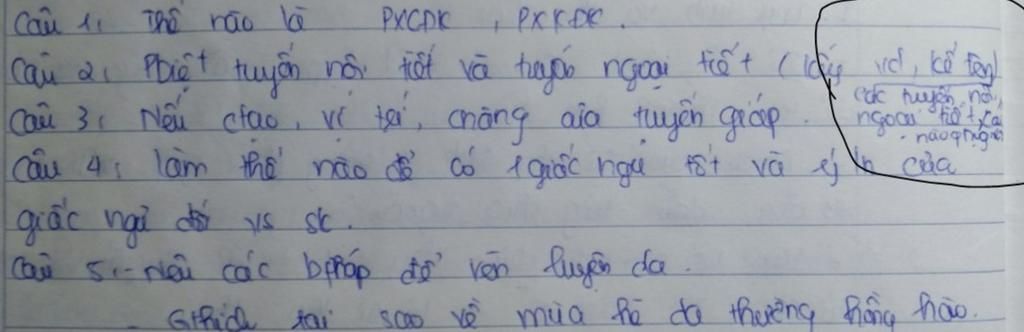 Câu 1: Thế nào là PXCĐK, PXKĐK.
Câu 2: Pbiệt tuyến nội tiết và tuyến ngoại tiết (lấy vd, kể tên
các tuyến nội,
ngoại tiết
Câu 3: Nêu ctạo, vị trí, cnăng của tuyến giáp.
Câu 4: Làm thế nào để có 1 giấc ngủ tốt và ý của
giấc ngủ đối vs sk.
Câu 5: - Nêu các bpháp để rèn luyện da.
- Gthích tại sao về mùa hè da thường hồng hào.